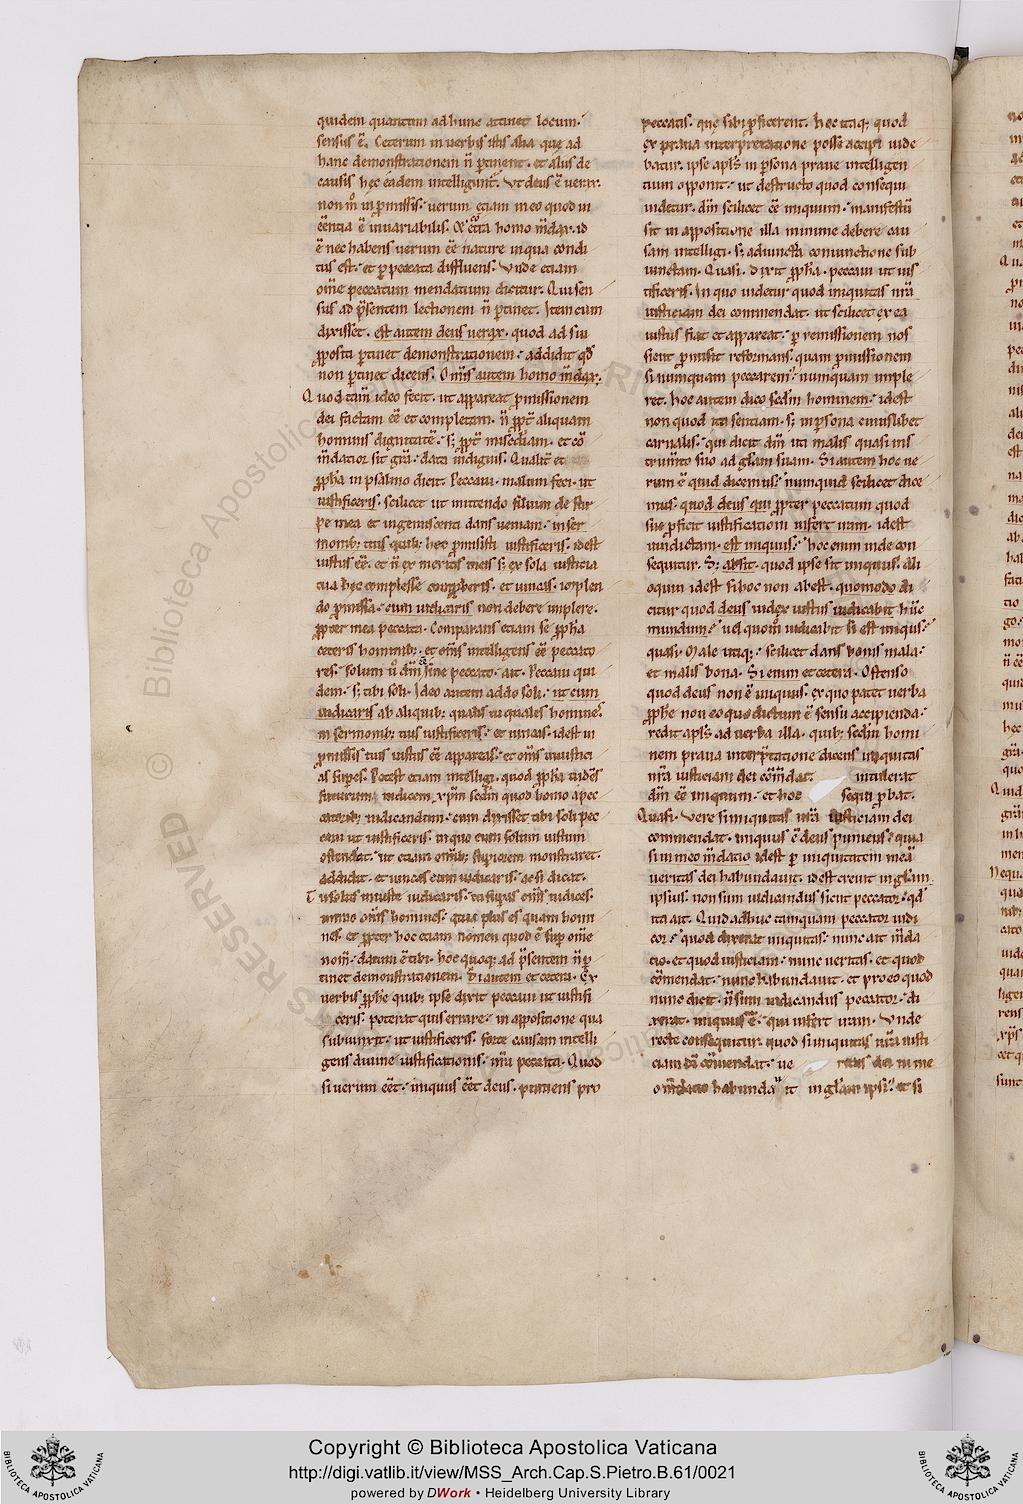 quidem quantum ad hunc attinet locum.
sensus ē. Ceterum in verbis istis alia que ad
hanc demonstrationem n̄ ꝑtinent. et alus de
causis hęc eadem intelligunt᷑. Ut deus ē verax.
non m̊ in ꝓmissis. verum etiam in eo quod in
ēēntia ē invariabilis. homo m̄dax. id
ē nec habens verum ēē nature in qua condi
tus est. et ꝑ peccata diffluens. Unde etiam
om̄e peccatum mendatium dicitur. Qui sen
sus ad p̄sentem lectionem n̄ ꝑtinet. Item cum
dixisset. est autem deus verax. quod ad sui
ꝓpositi ꝑtinet demonstrationem. addidit qd̄
non ꝑtinet dicens. Om̄is autem homo m̄dax.
Quod tam̄ ideo fecit. ut appareat ꝓmissionem
dei factam ēē et completam. n̄ ꝓpt̄ aliquam
hominis dignitatē. s; ꝓpt̄ misc̄diam. et cō
m̄datior sit gr̄a. data indignis. Qualit̄ et
ꝓpha in psalmo dicit. Peccavi. malum feci. ut
iustificeris. scilicet ut mittendo filium de stir
pe mea et ingemiscenti dans veniam. in ser
monib; tuis quib; hęc ꝓmisisti iustificeris. idest
iustus ēē. et n̄ ex meritis meis s; ex sola iusticia
tua hęc complesse et vincas. implen
do ꝓmissa. cum iudicaris non debere implere.
ꝓpter mea peccata. Comparans etiam se ꝓpha
ceteris hominib; et om̄s intelligens ēē peccato
res. solum ū dn̄m sine peccato. ait. Peccavi qui
dem. s; tibi soli. Ideo autem addo soli. ut cum
iudicaris ab aliquib; qualis tu quales homines.
in sermonib; tuis iustificeris. et vincas. idest in
ꝓmissis tuis iustus ēē appareas. et om̄s iniustici
as suꝑes. Potest etiam intelligi. quod ꝓpha videns
futurum iudicem xp̄m sedm̄ quod homo a pec
catorib; iudicandum. cum dixisset tibi soli pec
cavi ut iustificeris. in quo eum solum iustum
ostendat. ut etiam om̄ib; suꝑiorem monstraret.
addidit. et vincas cum iudicaris. ac si dicat.
Tu solus iniuste iudicaris. om̄s iudices.
immo om̄s homines. quia plus es quam homi
nes. et ꝓpter hoc etiam nomen quod ē suꝑ om̄e
nom̄. datum ē tibi. hoc quoq; ad p̄sentem n̄ ꝑ
tinet demonstrationem. Si autem et cetera. Ex
verbis ꝓphe quib; ipse dixit peccavi ut iustifi
ceris. poterat quis errare. in appositione qua
subiunxit. ut iustificeris. forte causam intelli
gens divine iustificationis. nr̄a peccata. Quod
si verum eēt. iniquus eēt deus. puniens pro
peccatis. que sibi ꝓficerent. hoc itaq; quod
ex prava interpretatione posse accipi vide
batur. ipse apl̄s in ꝑsona prave intelligen
tium opponit. ut destructo quod consequi
videtur. dm̄ scilicet ēē iniquum. manifestū
sit in appositione illa minime debere cau
sam intelligi. s; adiuncta coniunctione sub
iunctam. Quasi. dixit ꝓpha. peccavi ut ius
tificeris. In quo videtur quod iniquitas nr̄a
iusticiam dei commendat. ut scilicet ex ea
iustus fiat et appareat. ꝑ remissionem nos
sicut ꝓmisit reformans. quam ꝓmissionem
si nunquam peccarem᷑. nunquam imple
ret. hoc autem dico sedm̄ hominem. idest
non quod ita sentiam. s; in ꝑsona cuiuslibet
carnalis. qui dicit dm̄ uti malis quasi ins
trumento suo ad gl̄am suam. Si autem hoc ve
rum ē quid dicemus. numquid scilicet dice
mus. quod deus qui ꝓpter peccatum quod
sue ꝓficit iustificationi infert iram. idest
vindictam. est iniquus. hoc enim inde con
sequitur. S; absit. quod ipse sit iniquus. ali
oquin idest si hoc non abest. quomodo di
citur quod deus iudex iustus iudicabit hūc
mundum. vel quom̊ iudicabit si est iniqus.
quasi. Male utiq; scilicet dans bonis mala.
et malis bona. Si enim et cetera. Ostenso
quod deus non ē iniquus. ex quo patet verba
ꝓphe non eo quo dictum ē sensu accipienda.
redit apl̄s ad verba illa. quib; sedm̄ homi
nem prava interp̄tatione dicens iniquitas
nr̄a iusticiam dei cōm̄dat intulerat
dm̄ ēē iniquum. et hoc sequi ꝓbat.
Quasi. Vere si iniquitas nr̄a iusticiam dei
commendat. iniquus ē deus puniens. quia
si in meo m̄datio idest ꝑ iniquitatem meā
veritas dei habundavit. idest crevit in gl̄am
ipsius. non sum iudicandus sicut peccator. qd̄
ita ait. Quid adhuc tamquam peccator iudi
cor. quod dixerat iniquitas. nunc ait m̄da
cio. et quod iusticiam. nunc veritas. et quod
cōmendat. nunc habundavit. et pro eo quod
nunc dicit. n̄ sim iudicandus peccator. di
xerat. iniquus ē. qui infert iram. Unde
recte consequitur. quod si iniquitas nr̄a iusti
ciam di cōmendat. ve ritas dei in me
o m̄dacio habundavit in gl̄am ipsiꝰ. et si
Copyright © Biblioteca Apostolica Vaticana
http://digi.vatlib.it/view/MSS_Arch.Cap.S.Pietro.B.61/0021
powered by DWork • Heidelberg University Library